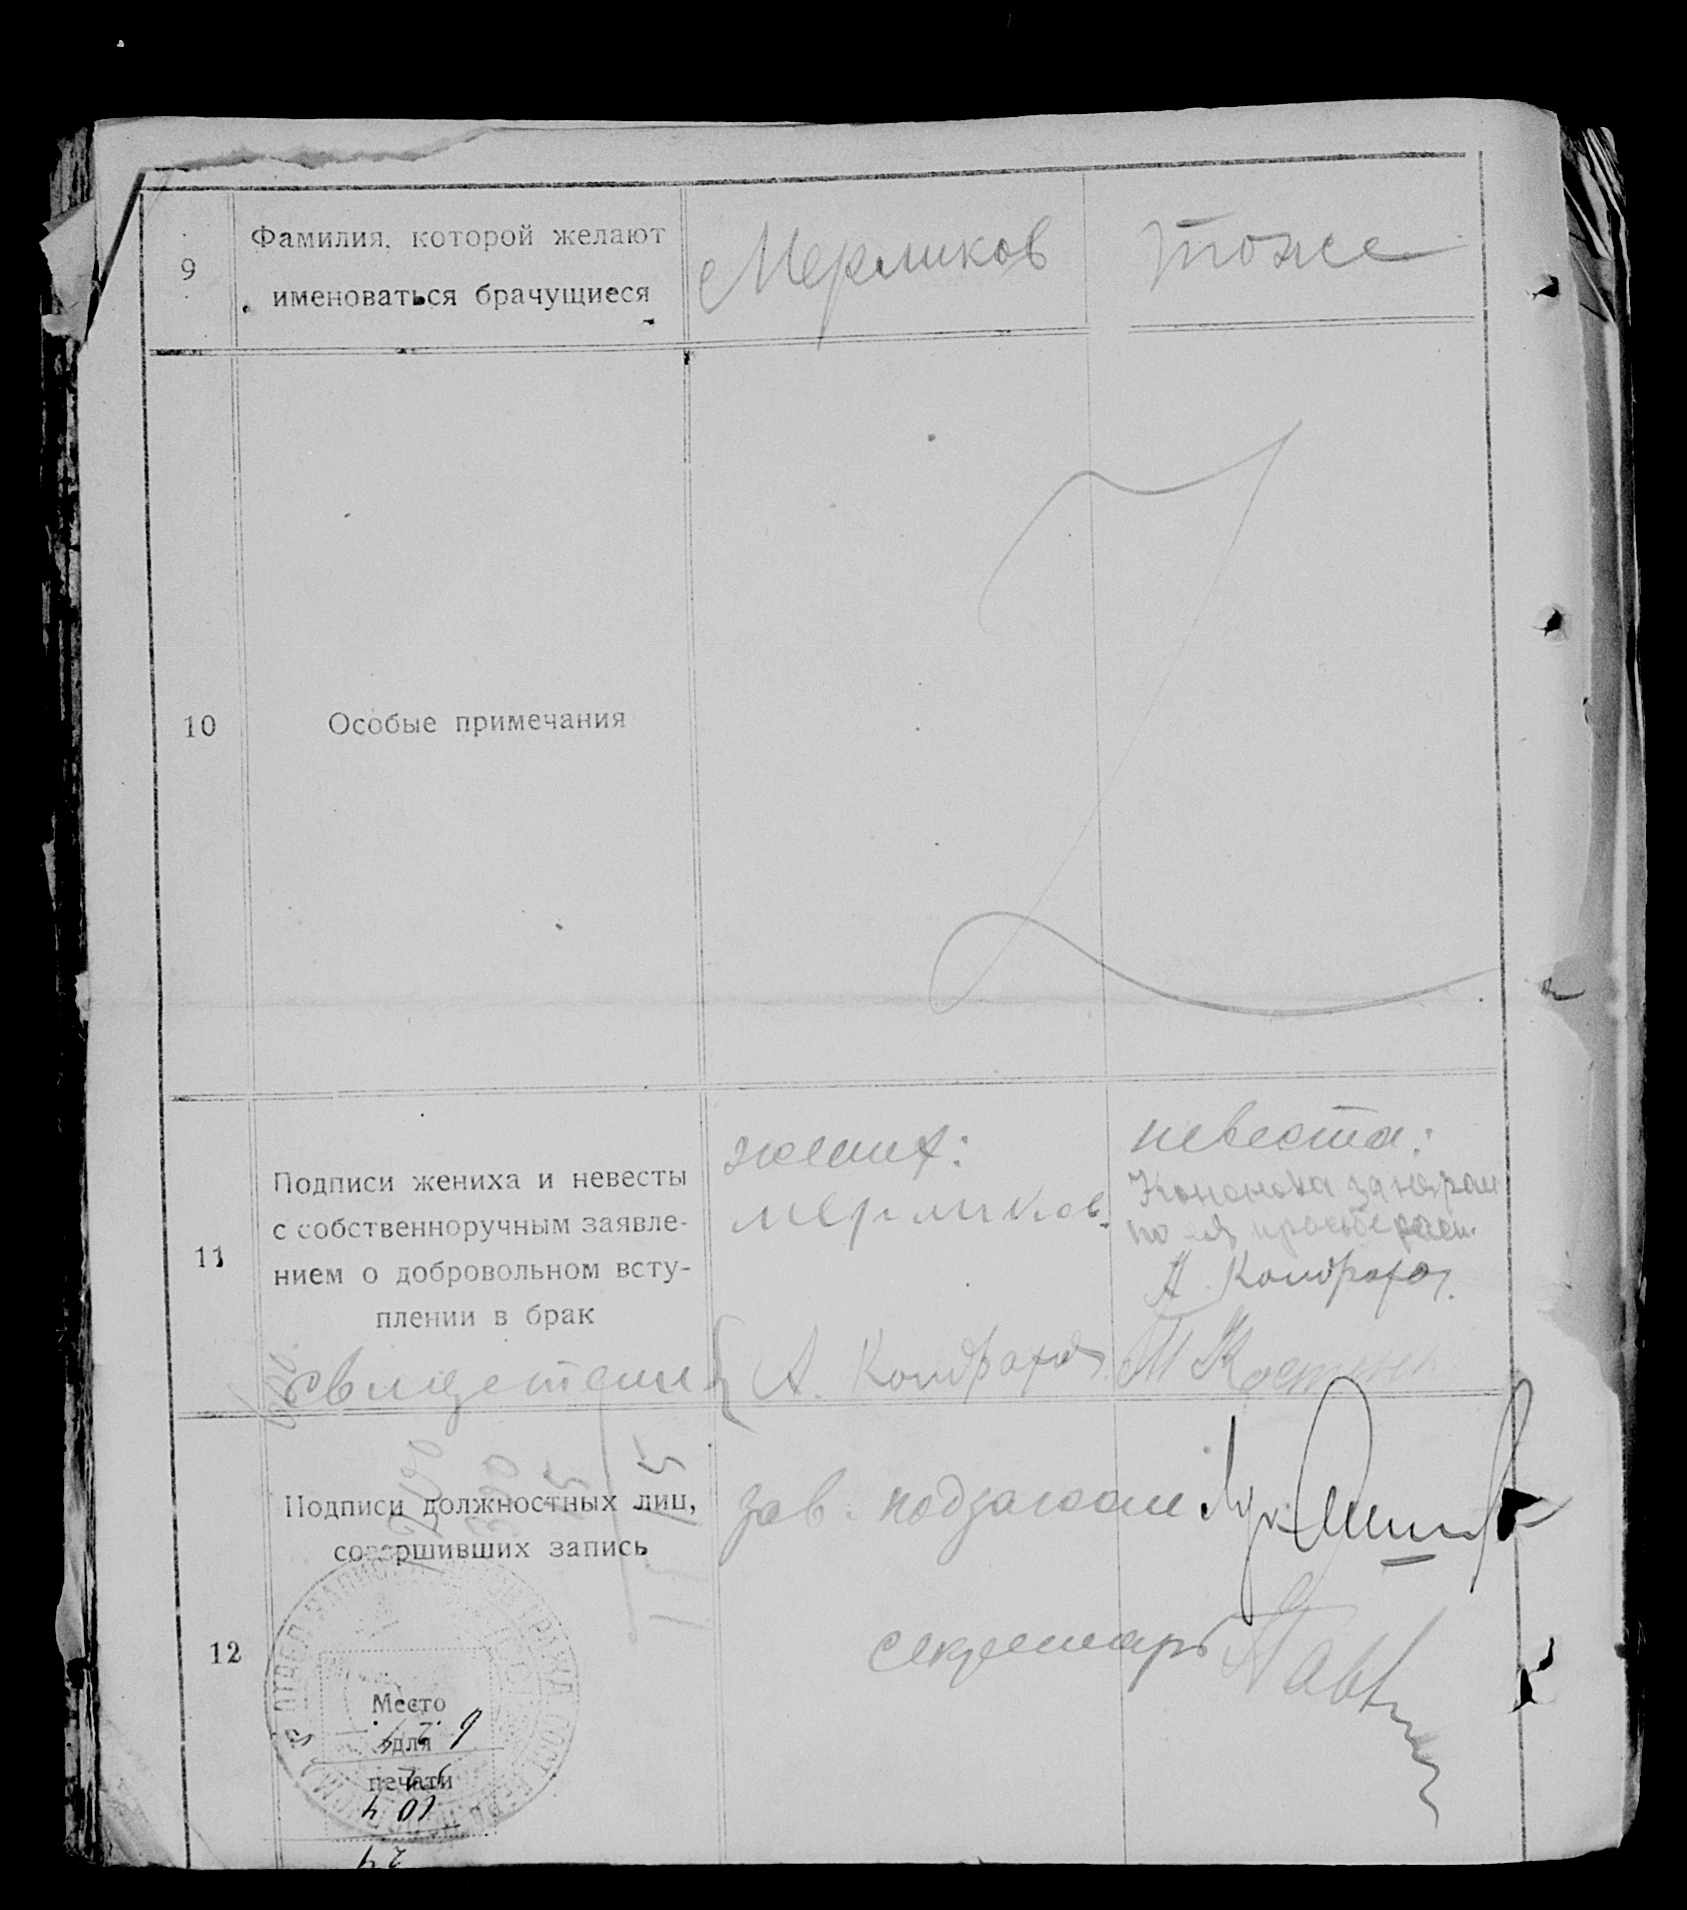 9
Фамилия, которой желают
именоваться брачущиеся
Мерликов
тоже
10
Особые примечания
11
Подписи жениха и невесты
с собственноручным заявле-
нием о добровольном всту-
плении в брак
жених:
Мерликов.
невеста:
Кононова за неграм
по ея просьбе расп.
А. Кондратов.
свидетели
А. Кондратов
М Костин
12
Подписи должностных лиц,
совершивших запись
зав. подзагсом
секретарь
Место
для
печати